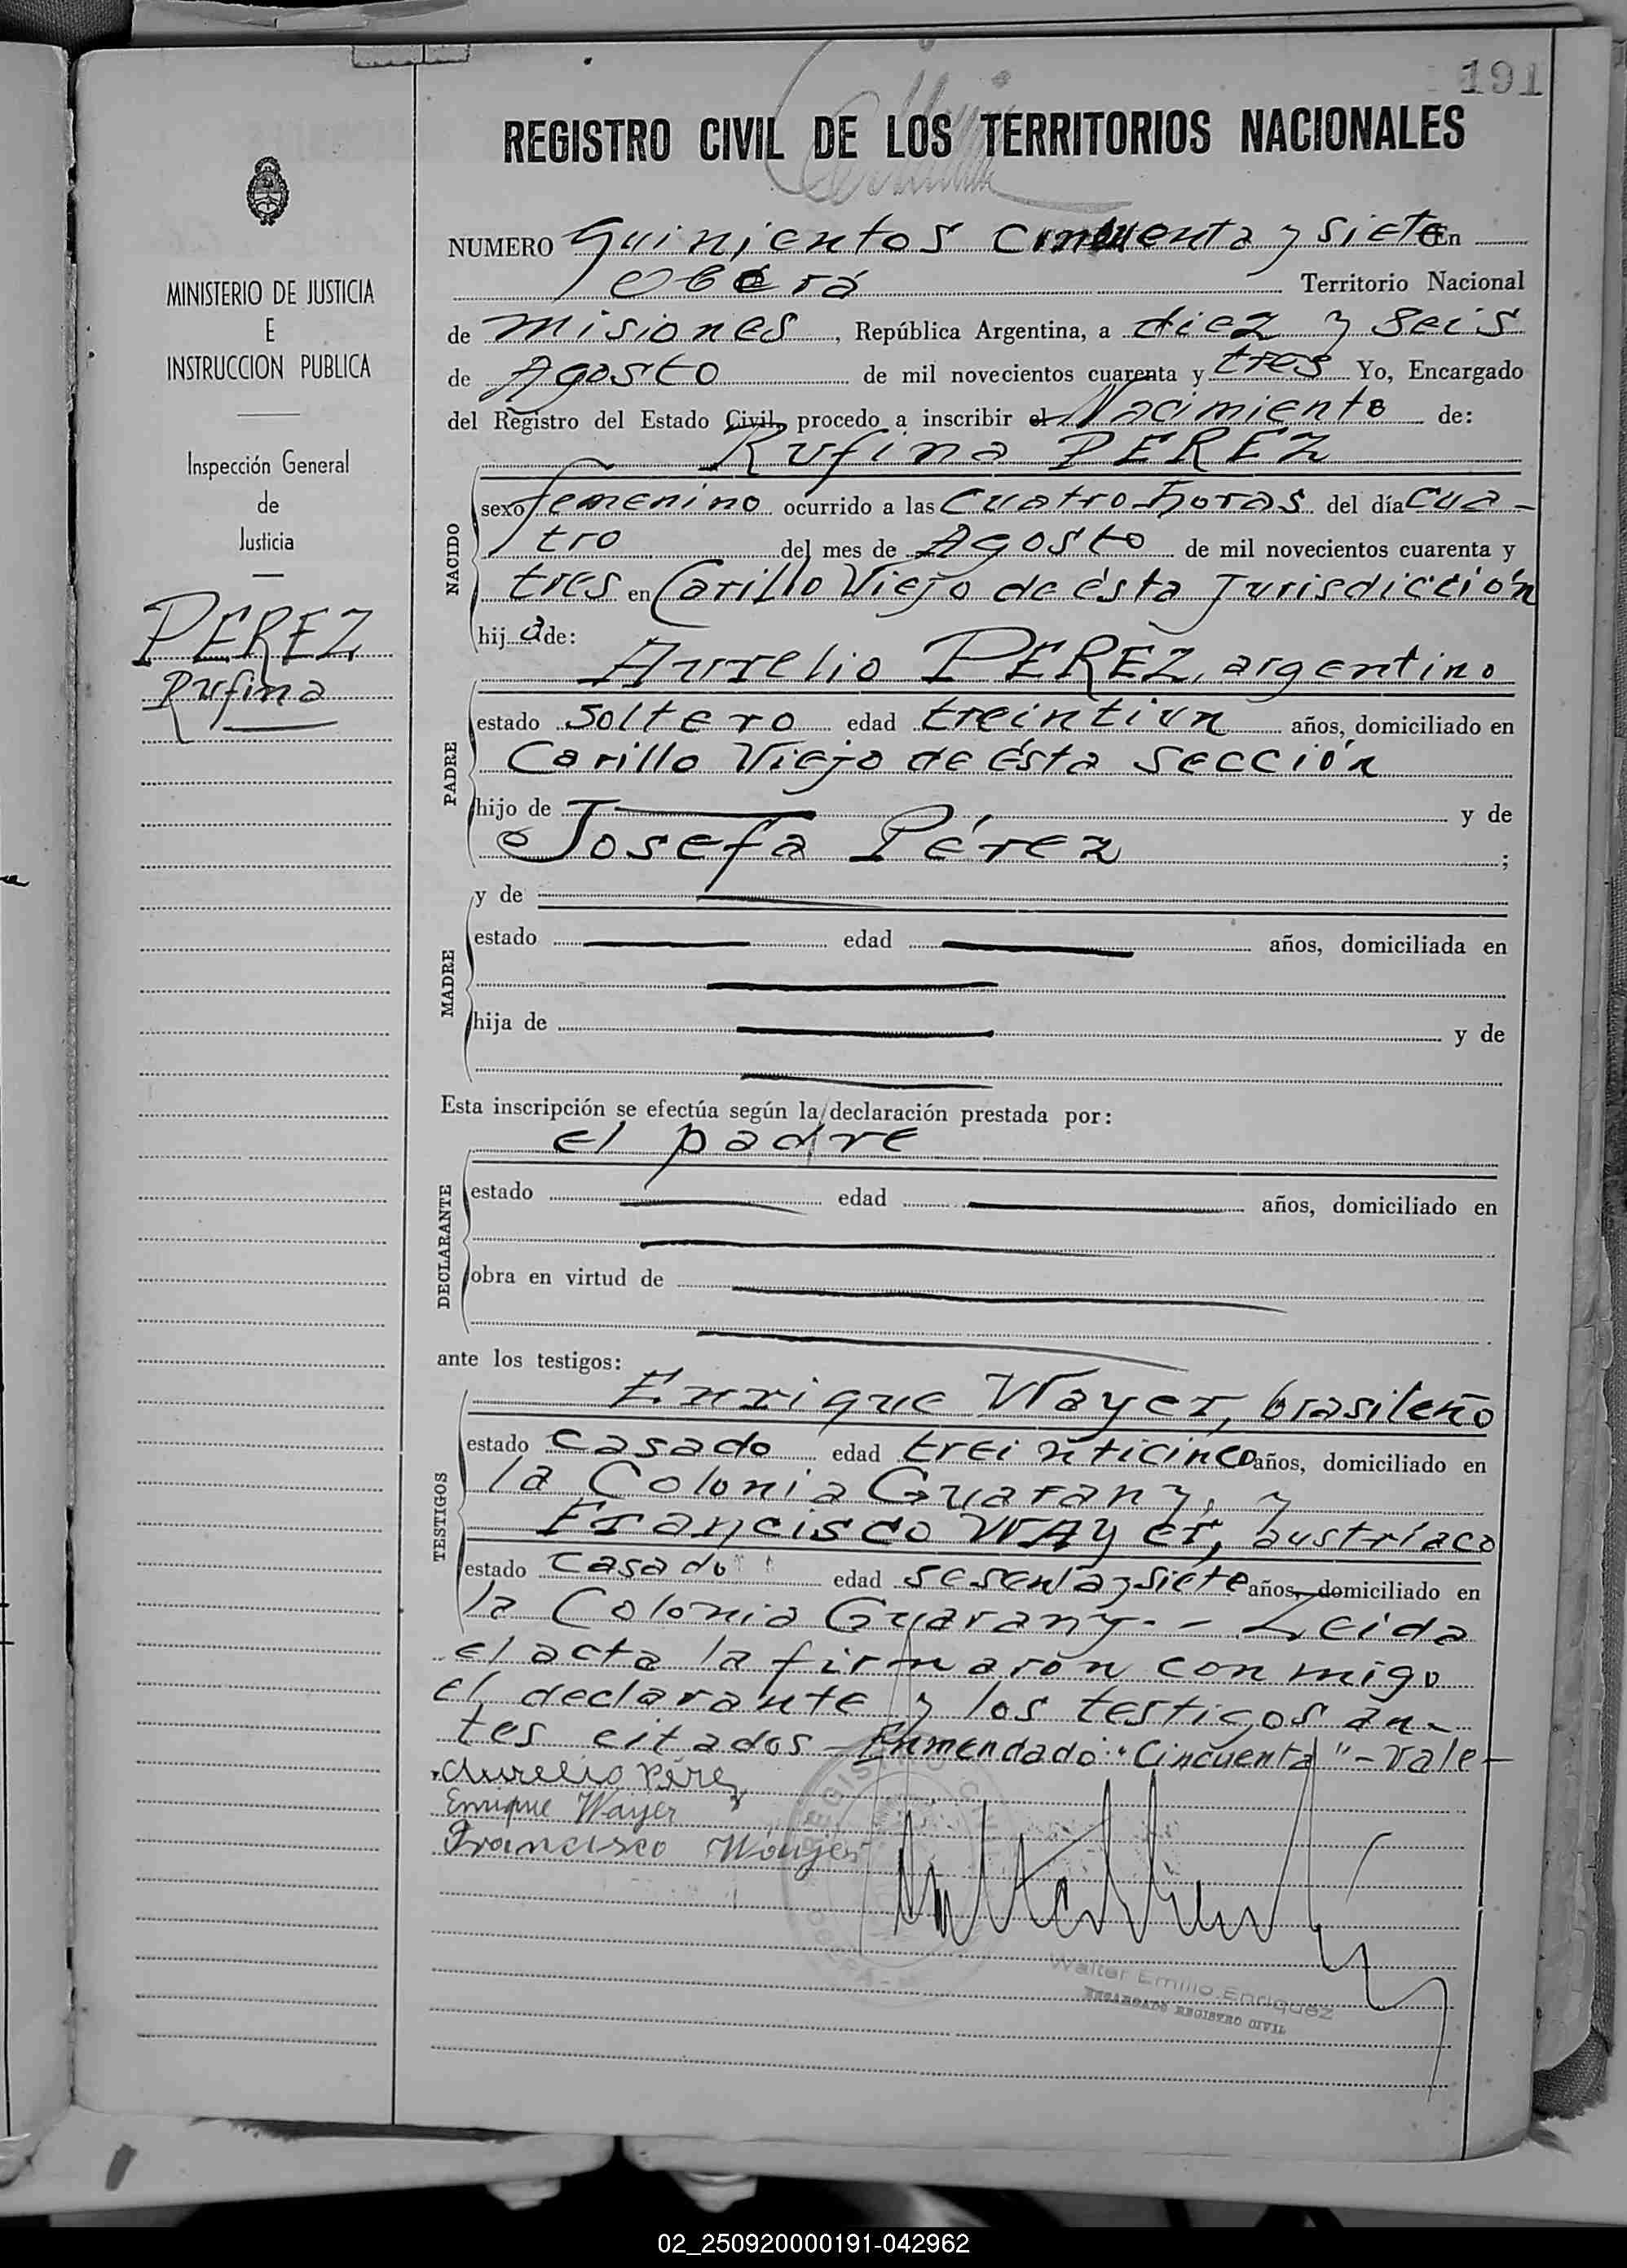 191
REGISTRO CIVIL DE LOS TERRITORIOS NACIONALES
MINISTERIO DE JUSTICIA
E
INSTRUCCION PUBLICA
Inspección General
de
Justicia
PEREZ
Rufina
NUMERO Quinientos cincuenta y siete En
Oberá Territorio Nacional
de Misiones, República Argentina, a diez y seis
de Agosto de mil novecientos cuarenta y tres Yo, Encargado
del Registro del Estado Civil, procedo a inscribir el Nacimiento de:
Rufina PEREZ
NACIDO
sexo femenino ocurrido a las cuatro horas del día cua-
tro del mes de Agosto de mil novecientos cuarenta y
tres en Carillo Viejo de ésta Jurisdicción
hija de:
Aurelio PEREZ, argentino
PADRE
estado soltero edad treintiun años, domiciliado en
Carillo Viejo de ésta sección
hijo de y de
Josefa Pérez ;
y de
MADRE
estado edad años, domiciliada en
hija de y de
Esta inscripción se efectúa según la declaración prestada por:
el padre
DECLARANTE
estado edad años, domiciliado en
obra en virtud de
ante los testigos:
Enrique Wayer, brasileño
TESTIGOS
estado casado edad treinticinco años, domiciliado en
la Colonia Guarany, y
Francisco WAyer, austríaco
estado casado edad sesenta y siete años, domiciliado en
la Colonia Guarany.- - Leida
el acta la firmaron conmigo
el declarante y los testigos an-
tes citados - Enmendado: "Cincuenta" - Vale -
Aurelio Pérez
Enrique Wayer
Francisco Wayer
Walter Emilio Enriquez
ENCARGADO REGISTRO CIVIL
02_250920000191-042962